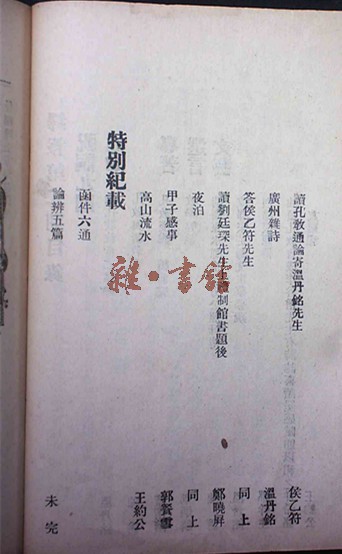 讀孔教通論寄溫丹銘先生 侯乙符
廣州雜詩 溫丹銘
答侯乙符先生 同上
讀劉廷琛先生 制館書題後 鄭曉屏
夜泊 同上
甲子感事 郭餐雪
高山流水 王約公
特別紀載
函件六通
論辨五篇
未完
雜·書館